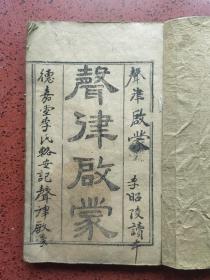 聲律啟蒙
李昭陵讀本
聲律啟蒙
德嘉堂李氏輅安記聲律啟蒙